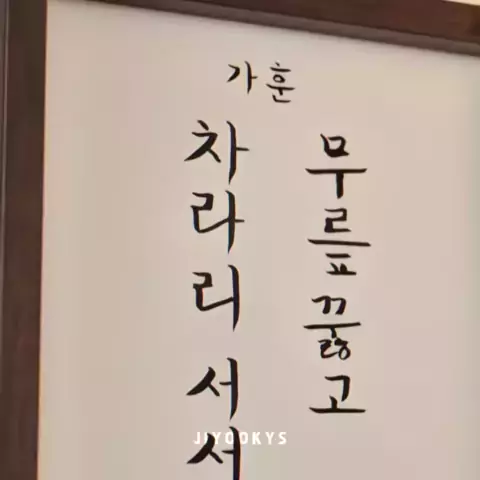 가훈
무릎꿇고
차라리 서서
JIYOOKYS